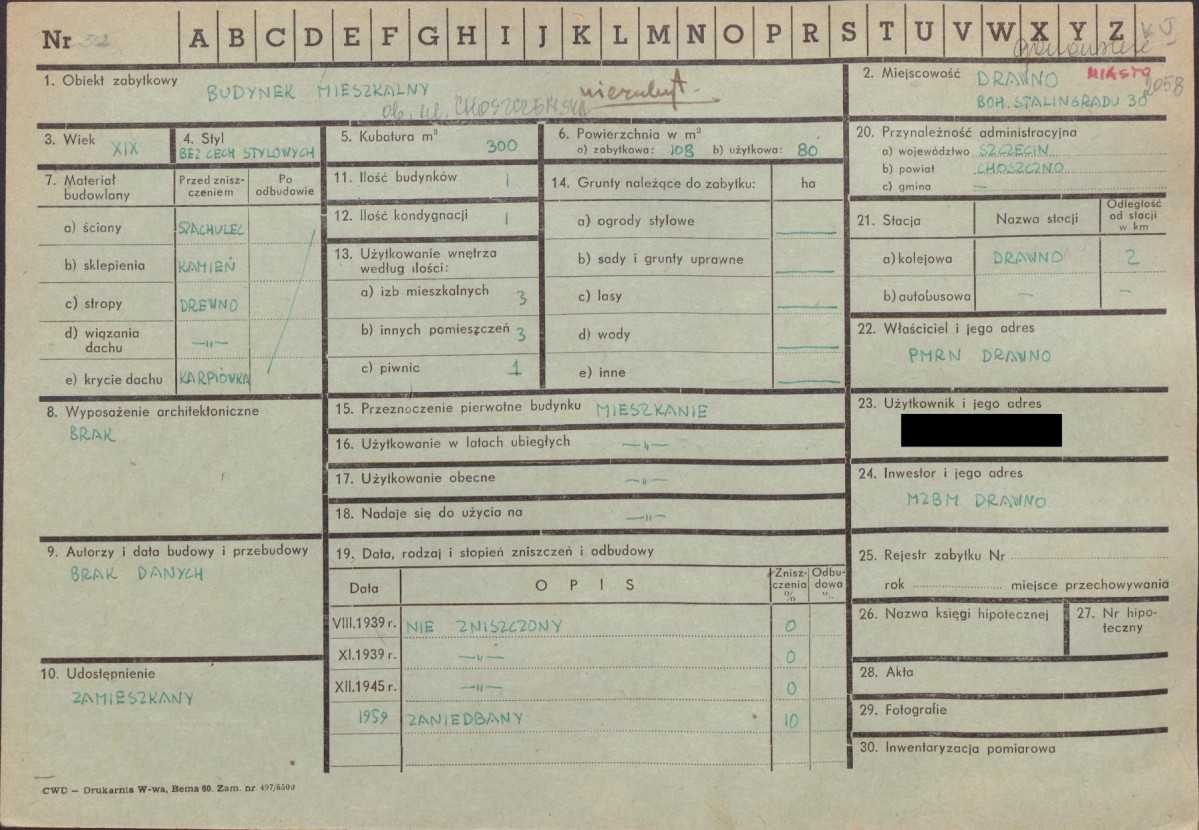 Nr 512 A B C D E F G H I J K L M N O P R S T U V W X Y Z
1. Obiekt zabytkowy BUDYNEK MIESZKALNY
ob. ul. CHOSZCZEŃSKA
2. Miejscowość DRAWNO MIASTO
BOH. STALINGRADU 30
3. Wiek XIX
4. Styl
BEZ CECH STYLOWYCH
5. Kubatura m³ 300
6. Powierzchnia w m²
a) zabytkowa: 108 b) użytkowa: 80
7. Materiał budowlany
Przed zniszczeniem
Po odbudowie
a) ściany SZACHULEC
b) sklepienia KAMIEŃ
c) stropy DREWNO
d) wiązania dachu —"—
e) krycie dachu KARPIÓWKA
8. Wyposażenie architektoniczne
BRAK
9. Autorzy i data budowy i przebudowy
BRAK DANYCH
10. Udostępnienie
ZAMIESZKANY
11. Ilość budynków 1
12. Ilość kondygnacji 1
13. Użytkowanie wnętrza
według ilości:
a) izb mieszkalnych 3
b) innych pomieszczeń 3
c) piwnic 1
14. Grunty należące do zabytku: ha
a) ogrody stylowe —
b) sady i grunty uprawne —
c) lasy —
d) wody —
e) inne —
15. Przeznoczenie pierwotne budynku MIESZKANIE
16. Użytkowanie w latach ubiegłych —"—
17. Użytkowanie obecne —"—
18. Nadaje się do użycia na —"—
19. Data, rodzaj i stopień zniszczeń i odbudowy
Data OPIS Zniszczenia % Odbudowa %
VIII.1939 r. NIE ZNISZCZONY 0
XI.1939 r. —"— 0
XII.1945 r. —"— 0
1959 ZANIEDBANY 10
20. Przynależność administracyjna
a) województwo SZCZECIN
b) powiat CHOSZCZNO
c) gmina —
21. Stacja Nazwa stacji Odległość od stacji w km
a) kolejowa DRAWNO 2
b) autobusowa — —
22. Właściciel i jego adres
PMRN DRAWNO
23. Użytkownik i jego adres
24. Inwestor i jego adres
MZBM DRAWNO
25. Rejestr zabytku Nr
rok miejsce przechowywania
26. Nazwa księgi hipotecznej
27. Nr hipoteczny
28. Akta
29. Fotografie
30. Inwentaryzacja pomiarowa
CWD — Drukarnia W-wa, Bema 60. Zam. nr 497/6500